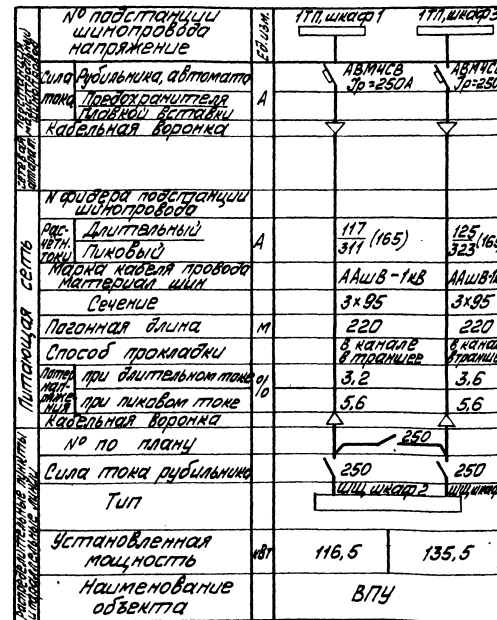 № подстанции
шинопровода
напряжение
Ед. изм.
1ТП, шкаф 1
1ТП, шкаф 3
Сила тока
Рубильника, автомата
Предохранителя
Плавкой вставки
А
АВМ4СВ
Jр=250А
АВМ4СВ
Jр=250
Кабельная воронка
Питающая сеть
N фидера подстанции
шинопровода
Расчётн. токи
Длительный
Пиковый
А
117
311 (165)
125
323 (16
Марка кабеля провода
Материал шин
ААшВ-1кВ
ААшВ-1к
Сечение
3×95
3×95
Погонная длина
м
220
220
Способ прокладки
в канале
в траншее
в канал
в транше
при длительном токе
%
3,2
3,6
при пиковом токе
5,6
5,6
Кабельная воронка
Распределительные пункты
№ по плану
250
Сила тока рубильника
250
250
Тип
ШЩ шкаф 2
ШЩ шкаф
Установленная
мощность
кВт
116,5
135,5
Наименование
объекта
ВПУ